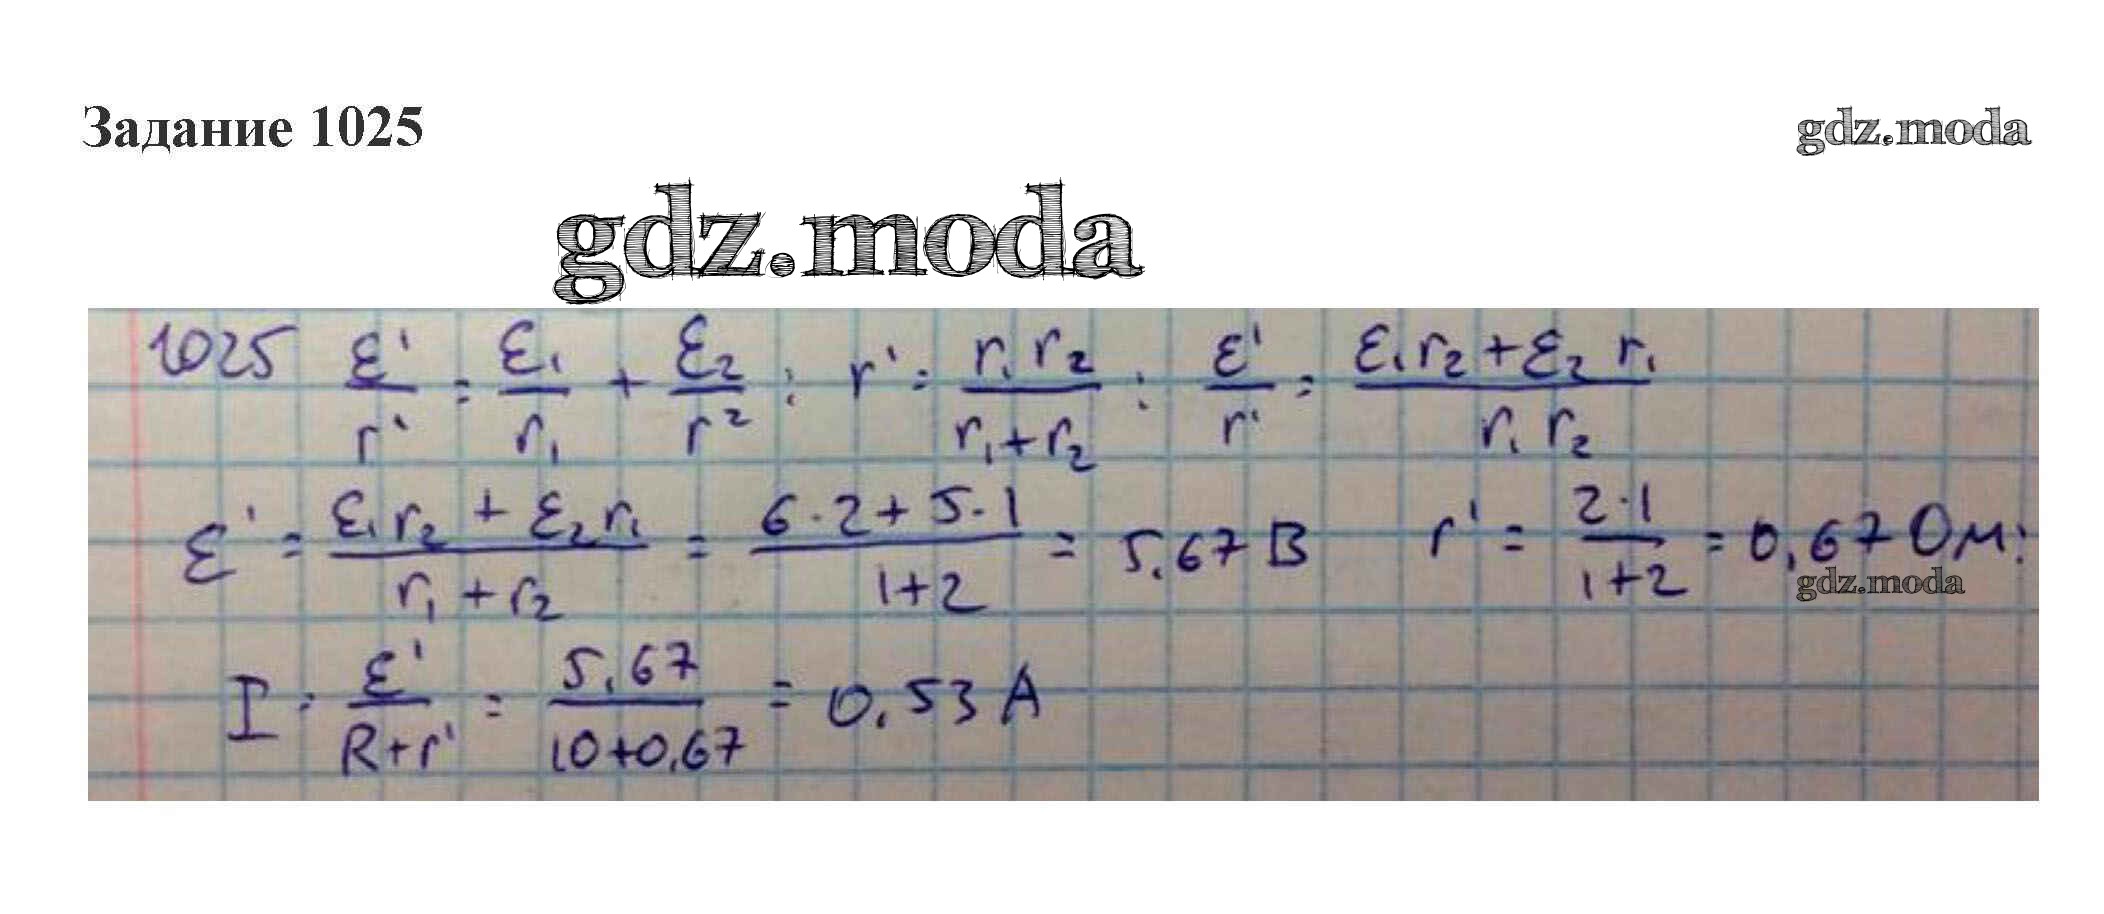 Задание 1025
gdz.moda
gdz.moda
1025 ε'/r' = ε₁/r₁ + ε₂/r² ; r' = r₁ r₂/(r₁+r₂) ; ε'/r' = (ε₁r₂+ε₂ r₁)/(r₁ r₂)
ε' = (ε₁r₂ + ε₂r₁)/(r₁+r₂) = (6·2+5·1)/(1+2) = 5,67 В r' = (2·1)/(1+2) = 0,67 Ом;
gdz.moda
I = ε'/(R+r') = 5,67/(10+0,67) = 0,53 А